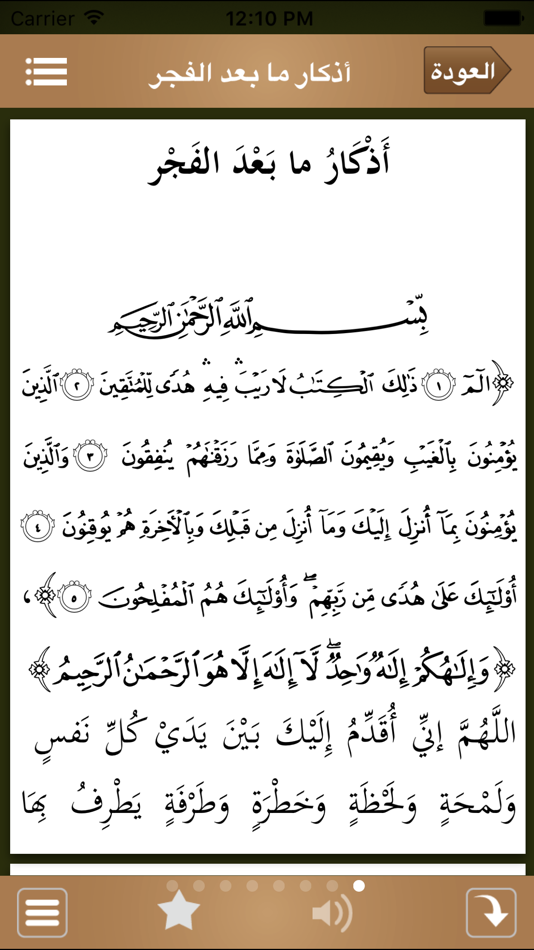 Carrier 12:10 PM
العودة أذكار ما بعد الفجر
أَذْكَارُ ما بَعْدَ الفَجْرِ
بِسْمِ ٱللَّهِ ٱلرَّحْمَٰنِ ٱلرَّحِيمِ
﴿الٓمٓ ١ ذَٰلِكَ ٱلْكِتَٰبُ لَا رَيْبَ ۛ فِيهِ ۛ هُدًى لِّلْمُتَّقِينَ ٢ ٱلَّذِينَ
يُؤْمِنُونَ بِٱلْغَيْبِ وَيُقِيمُونَ ٱلصَّلَوٰةَ وَمِمَّا رَزَقْنَٰهُمْ يُنفِقُونَ ٣ وَٱلَّذِينَ
يُؤْمِنُونَ بِمَآ أُنزِلَ إِلَيْكَ وَمَآ أُنزِلَ مِن قَبْلِكَ وَبِٱلْأَخِرَةِ هُمْ يُوقِنُونَ ٤
أُو۟لَٰٓئِكَ عَلَىٰ هُدًى مِّن رَّبِّهِمْ ۖ وَأُو۟لَٰٓئِكَ هُمُ ٱلْمُفْلِحُونَ ٥﴾،
﴿وَإِلَٰهُكُمْ إِلَٰهٌ وَٰحِدٌ ۖ لَّآ إِلَٰهَ إِلَّا هُوَ ٱلرَّحْمَٰنُ ٱلرَّحِيمُ﴾
اللَّهُمَّ إنِّي أُقَدِّمُ إِلَيْكَ بَيْنَ يَدَيْ كُلِّ نَفسٍ
وَلَمْحَةٍ وَلَحْظَةٍ وَخَطْرَةٍ وَطَرْفَةٍ يَطْرِفُ بِهَا